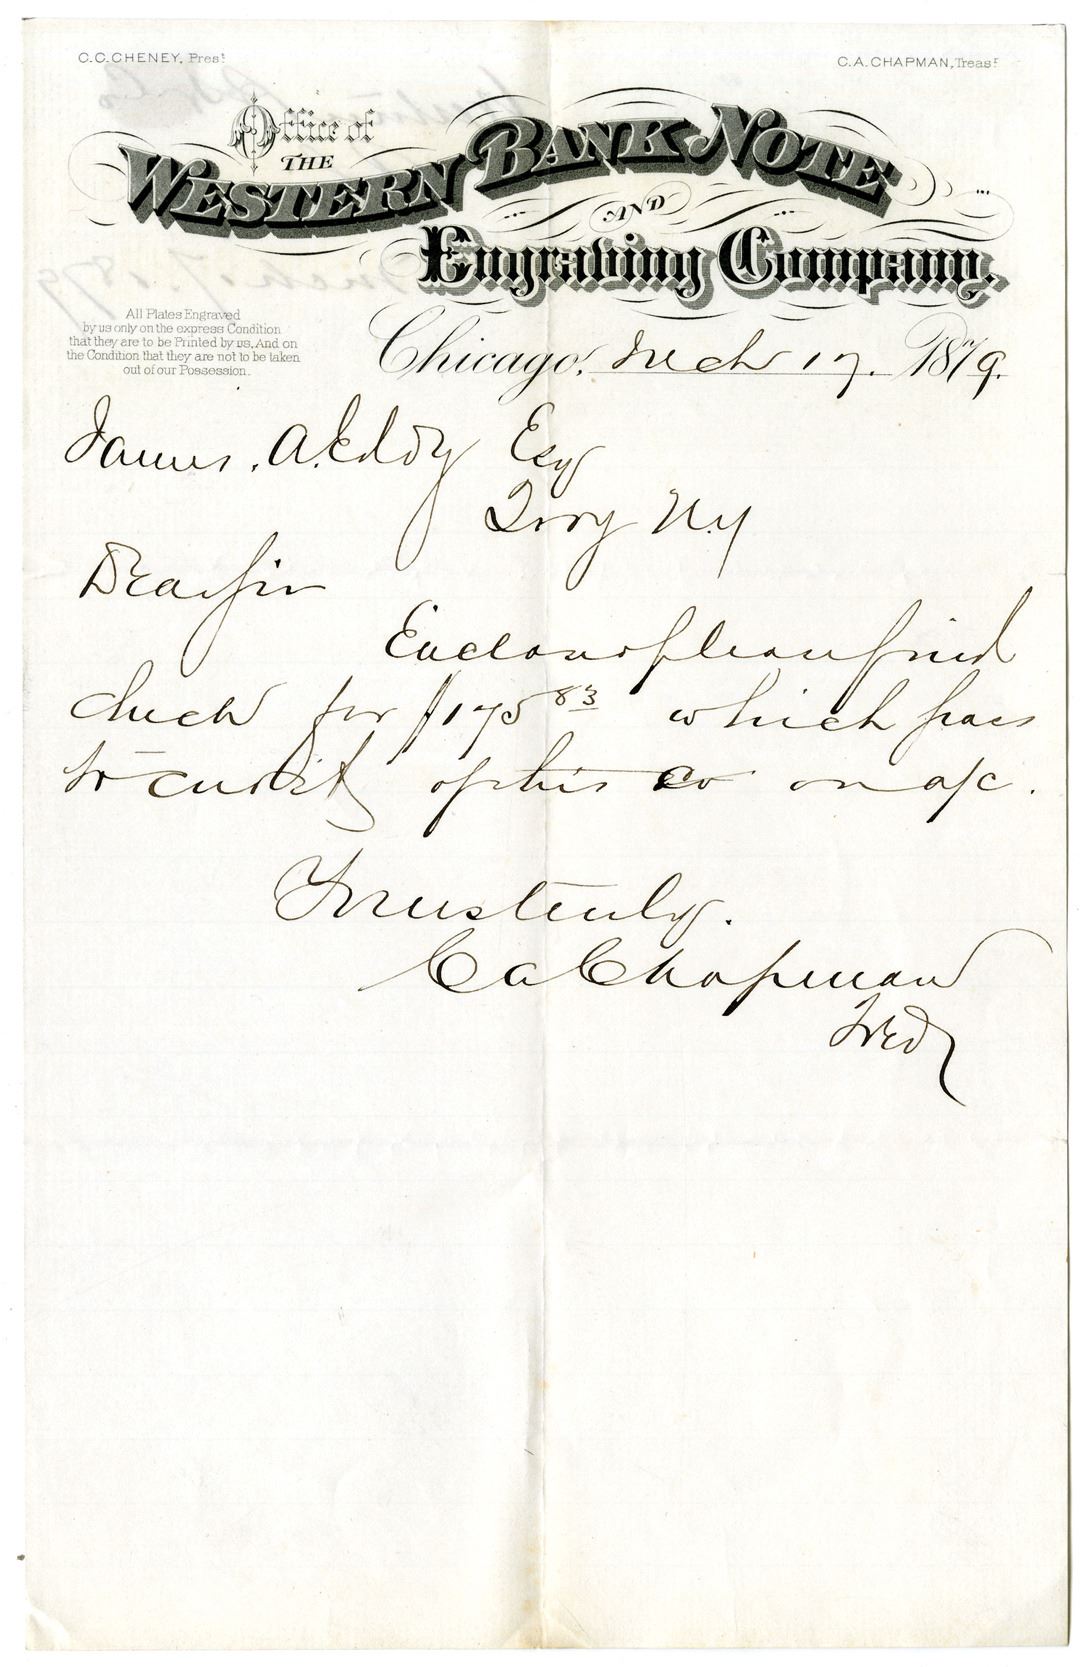 C.C. CHENEY, Prest
C.A. CHAPMAN, Treasr
Office of
THE
WESTERN BANK NOTE
AND
Engraving Company.
All Plates Engraved
by us only on the express Condition
that they are to be Printed by us, And on
the Condition that they are not to be taken
out of our Possession.
Chicago, Mch 17. 1879.
James. A. Eddy Esq
Troy N.Y
Dear Sir
Enclosed please find
check for $175 83 which pass
to credit of this Co on a/c.
Yours truly.
C A Chapman